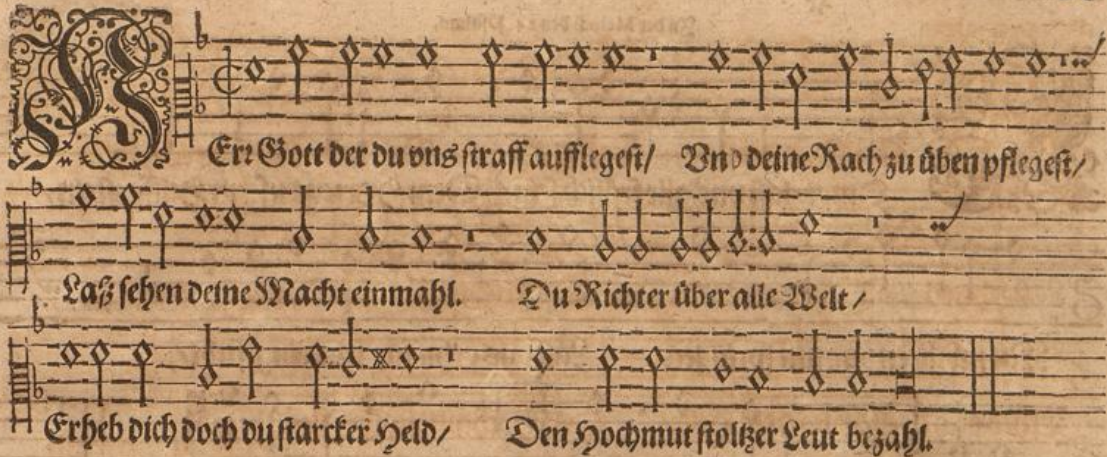 HErr Gott der du vns straff aufflegest/ Vnd deine Rach zu üben pflegest/
Laß sehen deine Macht einmahl. Du Richter über alle Welt/
Erheb dich doch du starcker Held/ Den Hochmut stoltzer Leut bezahl.